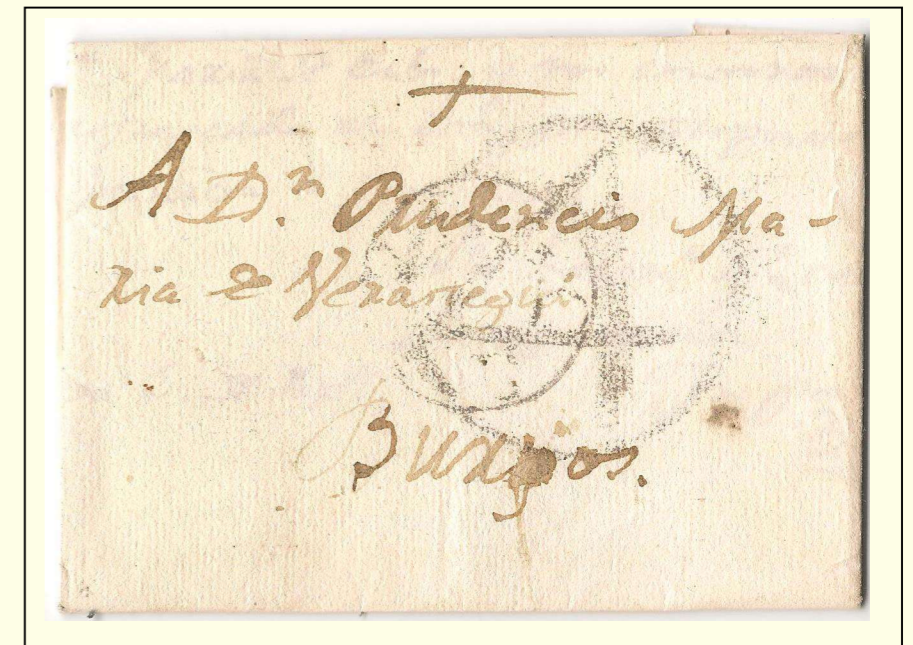 A D.n Prudencio Ma-
ria de Verástegui
Burgos.
4